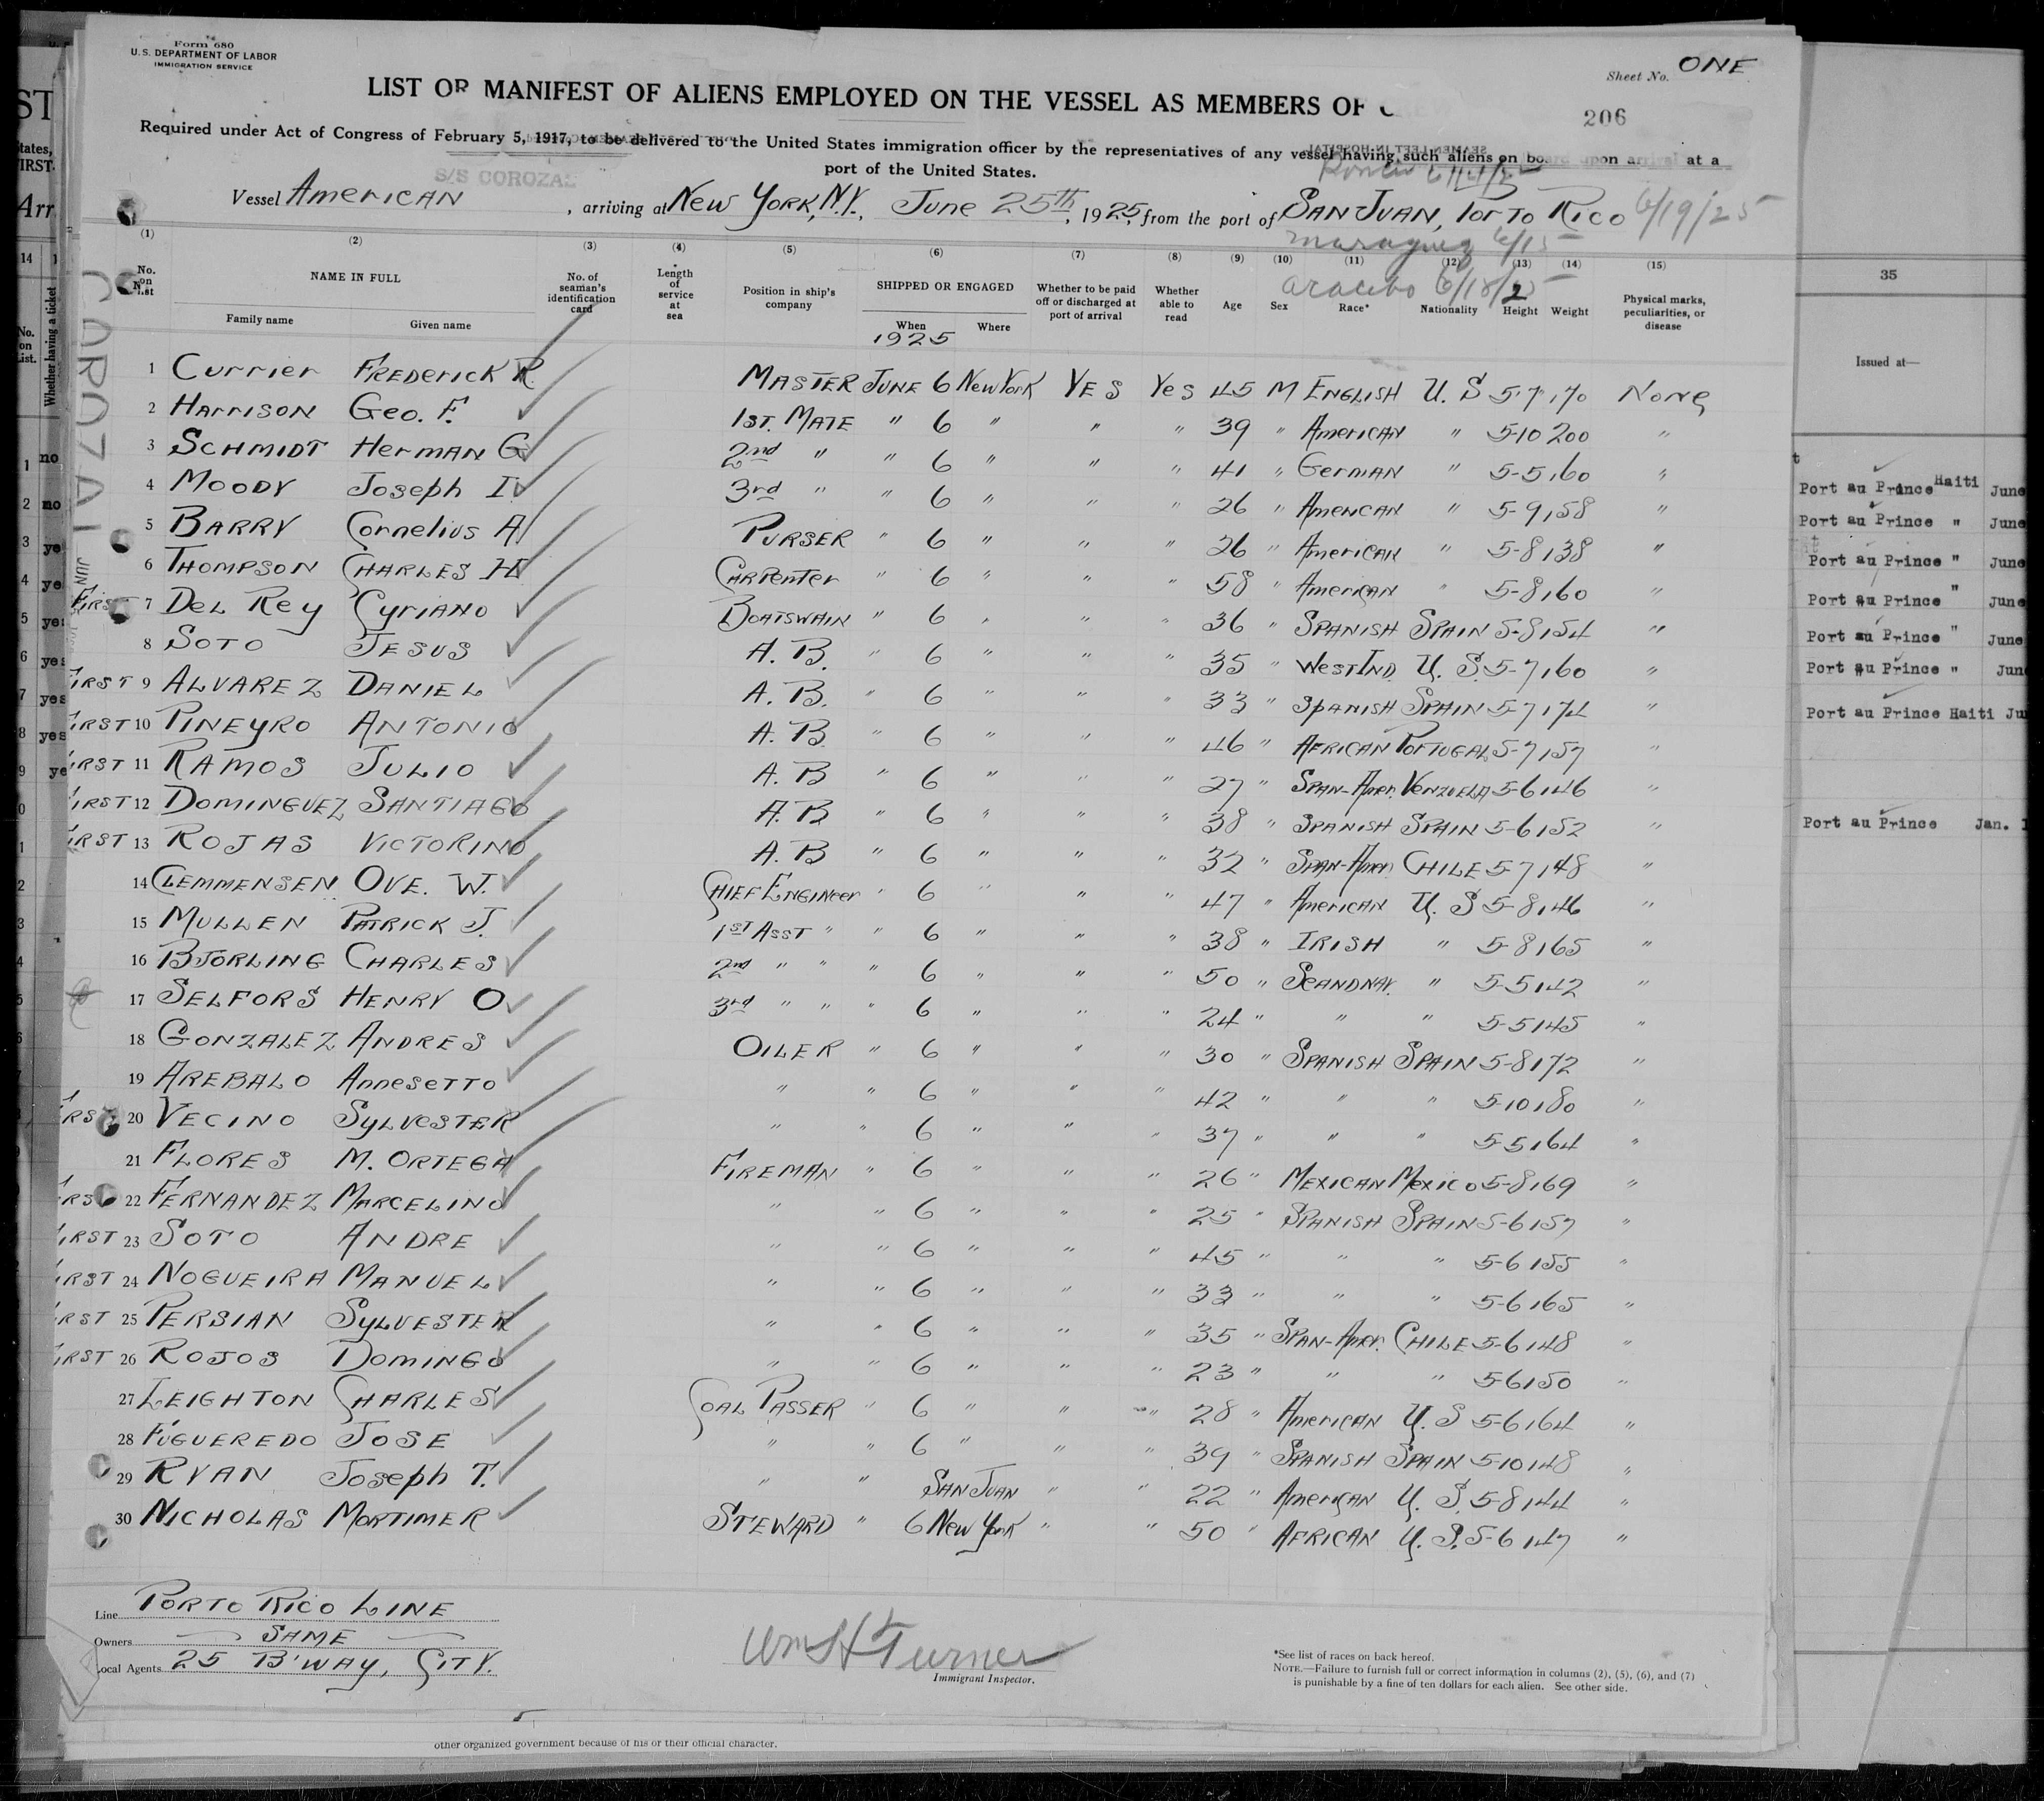 Form 680
U. S. DEPARTMENT OF LABOR
IMMIGRATION SERVICE
Sheet No. ONE
LIST OR MANIFEST OF ALIENS EMPLOYED ON THE VESSEL AS MEMBERS OF C
206
Required under Act of Congress of February 5, 1917, to be delivered to the United States immigration officer by the representatives of any vessel having such aliens on board upon arrival at a
port of the United States.
S/S COROZAL
SEAMEN LEFT IN HOSPITAL
Vessel American, arriving at New York, N.Y., June 25th, 1925, from the port of San Juan, Porto Rico 6/19/25
6/15
6/18/25
(1) (2) (3) (4) (5) (6) (7) (8) (9) (10) (11) (12) (13) (14) (15)
No. on List NAME IN FULL Family name Given name No. of seaman's identification card Length of service at sea Position in ship's company SHIPPED OR ENGAGED When Where Whether to be paid off or discharged at port of arrival Whether able to read Age Sex Race* Nationality Height Weight Physical marks, peculiarities, or disease
1925
2
COROZAL
1 Currier Frederick R. Master June 6 New York Yes Yes 45 M English U. S 5-7 170 None
2 Harrison Geo. F. 1st. Mate " 6 " " " 39 " American " 5-10 200 "
3 Schmidt Herman G 2nd " " 6 " " " 41 " German " 5-5 160 "
4 Moody Joseph I 3rd " " 6 " " " 26 " American " 5-9 158 "
5 Barry Cornelius A Purser " 6 " " " 26 " American " 5-8 138 "
6 Thompson Charles H Carpenter " 6 " " " 58 " American " 5-8 160 "
First 7 Del Rey Cyriano Boatswain " 6 " " " 36 " Spanish Spain 5-8 154 "
8 Soto Jesus A. B. " 6 " " " 35 " West Ind. U. S. 5-7 160 "
First 9 Alvarez Daniel A. B. " 6 " " " 33 " Spanish Spain 5-7 174 "
First 10 Pineyro Antonio A. B. " 6 " " " 46 " African Portugal 5-7 157 "
First 11 Ramos Julio A. B " 6 " " " 27 " Span-Amer. Venzuela 5-6 146 "
First 12 Dominguez Santiago A. B " 6 " " " 38 " Spanish Spain 5-6 152 "
First 13 Rojas Victorino A. B " 6 " " " 32 " Span-Amer. Chile 5-7 148 "
14 Clemmensen Ove. W. Chief Engineer " 6 " " " 47 " American U. S 5-8 146 "
15 Mullen Patrick J. 1st Asst " " 6 " " " 38 " Irish " 5-8 165 "
16 Bjorling Charles 2nd " " " 6 " " " 50 " Scandnav. " 5-5 142 "
17 Selfors Henry O 3rd " " " 6 " " " 24 " " " 5-5 145 "
18 Gonzalez Andres Oiler " 6 " " " 30 " Spanish Spain 5-8 172 "
19 Arebalo Annesetto " " 6 " " " 42 " " " 5-10 180 "
First 20 Vecino Sylvester " " 6 " " " 37 " " " 5-5 164 "
21 Flores M. Ortega Fireman " 6 " " " 26 " Mexican Mexico 5-8 169 "
First 22 Fernandez Marcelino " " 6 " " " 25 " Spanish Spain 5-6 157 "
First 23 Soto Andre " " 6 " " " 45 " " " 5-6 155 "
First 24 Nogueira Manuel " " 6 " " " 33 " " " 5-6 165 "
First 25 Persian Sylvester " " 6 " " " 35 " Span-Amer. Chile 5-6 148 "
First 26 Rojos Domingo " " 6 " " " 23 " " " 5-6 150 "
27 Leighton Charles Coal Passer " 6 " " " 28 " American U. S 5-6 164 "
28 Fugueredo Jose " " 6 " " " 39 " Spanish Spain 5-10 148 "
29 Ryan Joseph T. " " San Juan " " 22 " American U. S. 5-8 144 "
30 Nicholas Mortimer Steward " 6 New York " " 50 " African U. S. 5-6 147 "
Line Porto Rico Line
Owners Same
Local Agents 25 B'way, City.
Wm H Turner
Immigrant Inspector.
*See list of races on back hereof.
NOTE.—Failure to furnish full or correct information in columns (2), (5), (6), and (7)
is punishable by a fine of ten dollars for each alien. See other side.
other organized government because of his or their official character.
35
Issued at—
Port au Prince Haiti June
Port au Prince " June
Port au Prince " June
Port au Prince " June
Port au Prince " June
Port au Prince " Jun
Port au Prince Haiti Ju
Port au Prince Jan. 1